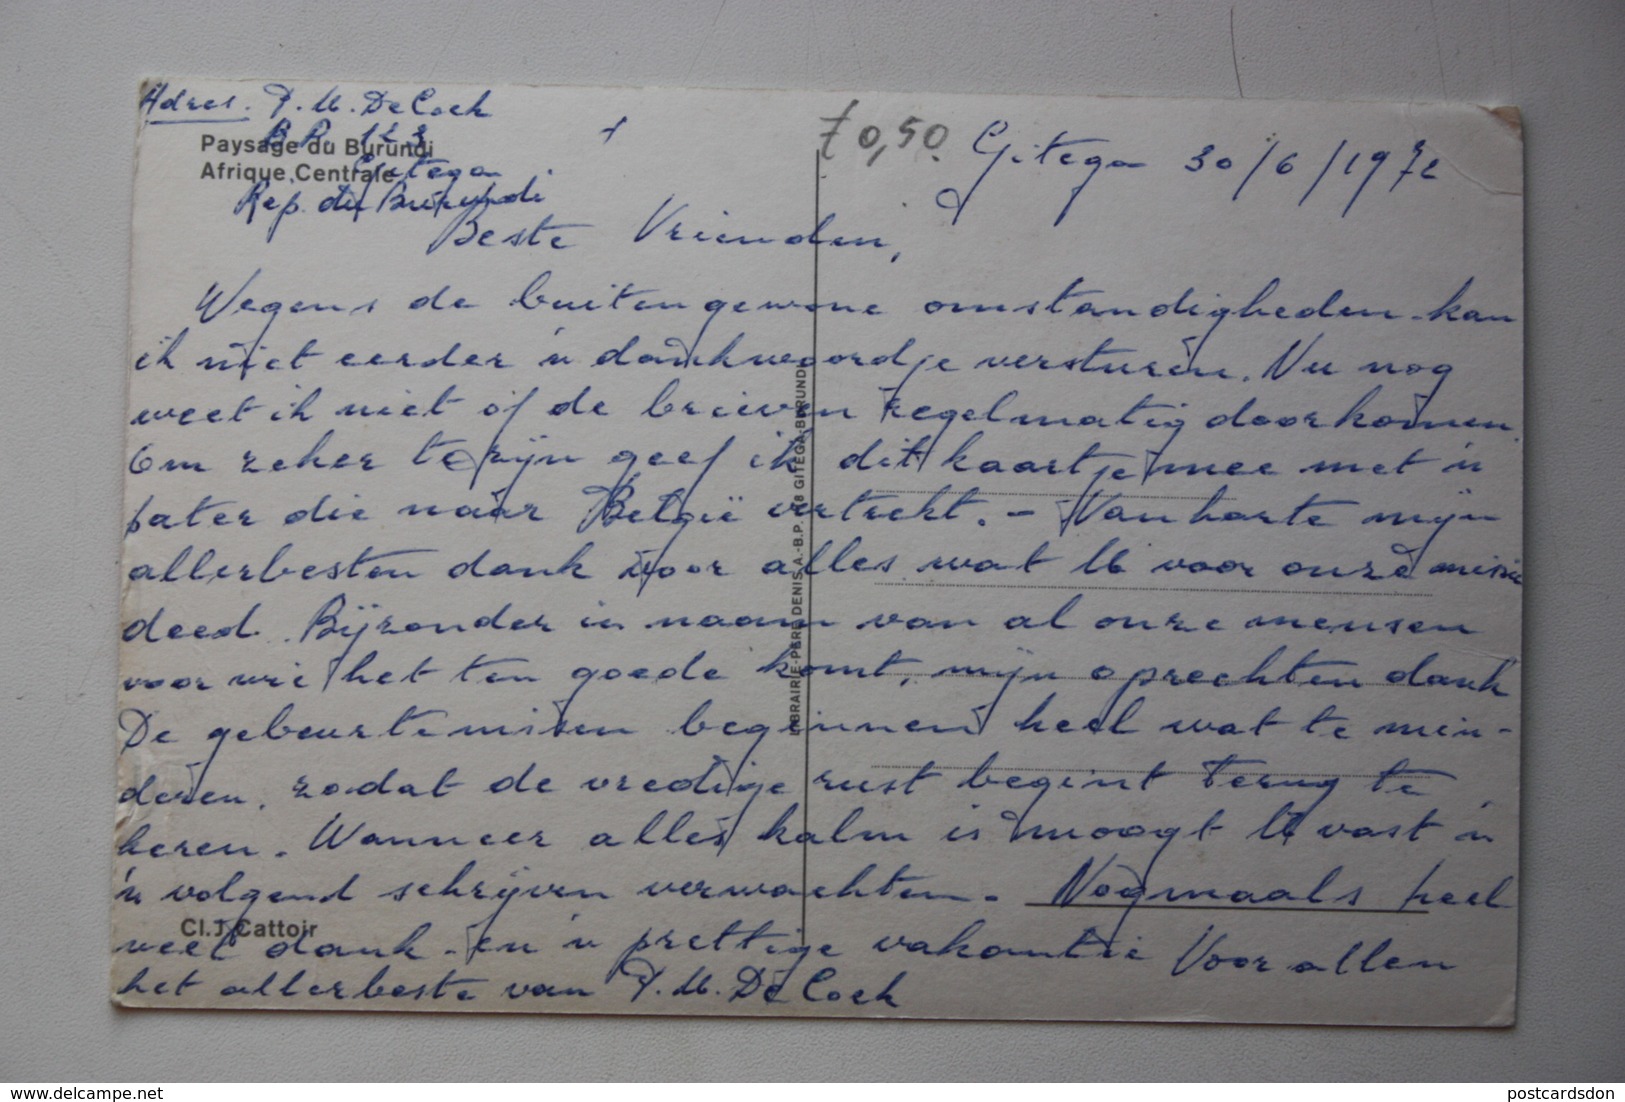 Adres. P. M. De Cock
B.P. 123
Gitega
Rep. du Burundi
Paysage du Burundi
Afrique Centrale
7 0,50
Gitega 30/6/1972
Beste Vrienden,
Wegens de buitengewone omstandigheden kan
ik niet eerder 'n dankwoordje versturen. Nu nog
weet ik niet of de brieven regelmatig doorkomen.
Om zeker te zijn geef ik dit kaartje mee met 'n
pater die naar België vertrekt. - Van harte mijn
allerbesten dank voor alles wat U voor onze missie
deed. Bijzonder in naam van al onze mensen
voor wie het ten goede komt, mijn oprechten dank
De gebeurtenissen beginnen heel wat te min-
deren, zodat de vredige rust begint terug te
keren. Wanneer alles kalm is moogt U vast 'n
'n volgend schrijven verwachten. Nogmaals heel
veel dank en 'n prettige vakantie Voor allen
het allerbeste van P. M. De Cock
Cl. J. Cattoir
LIBRAIRIE-PERE DENIS A.-B.P. 118 GITEGA-BURUNDI
delcampe.net
postcardsdon